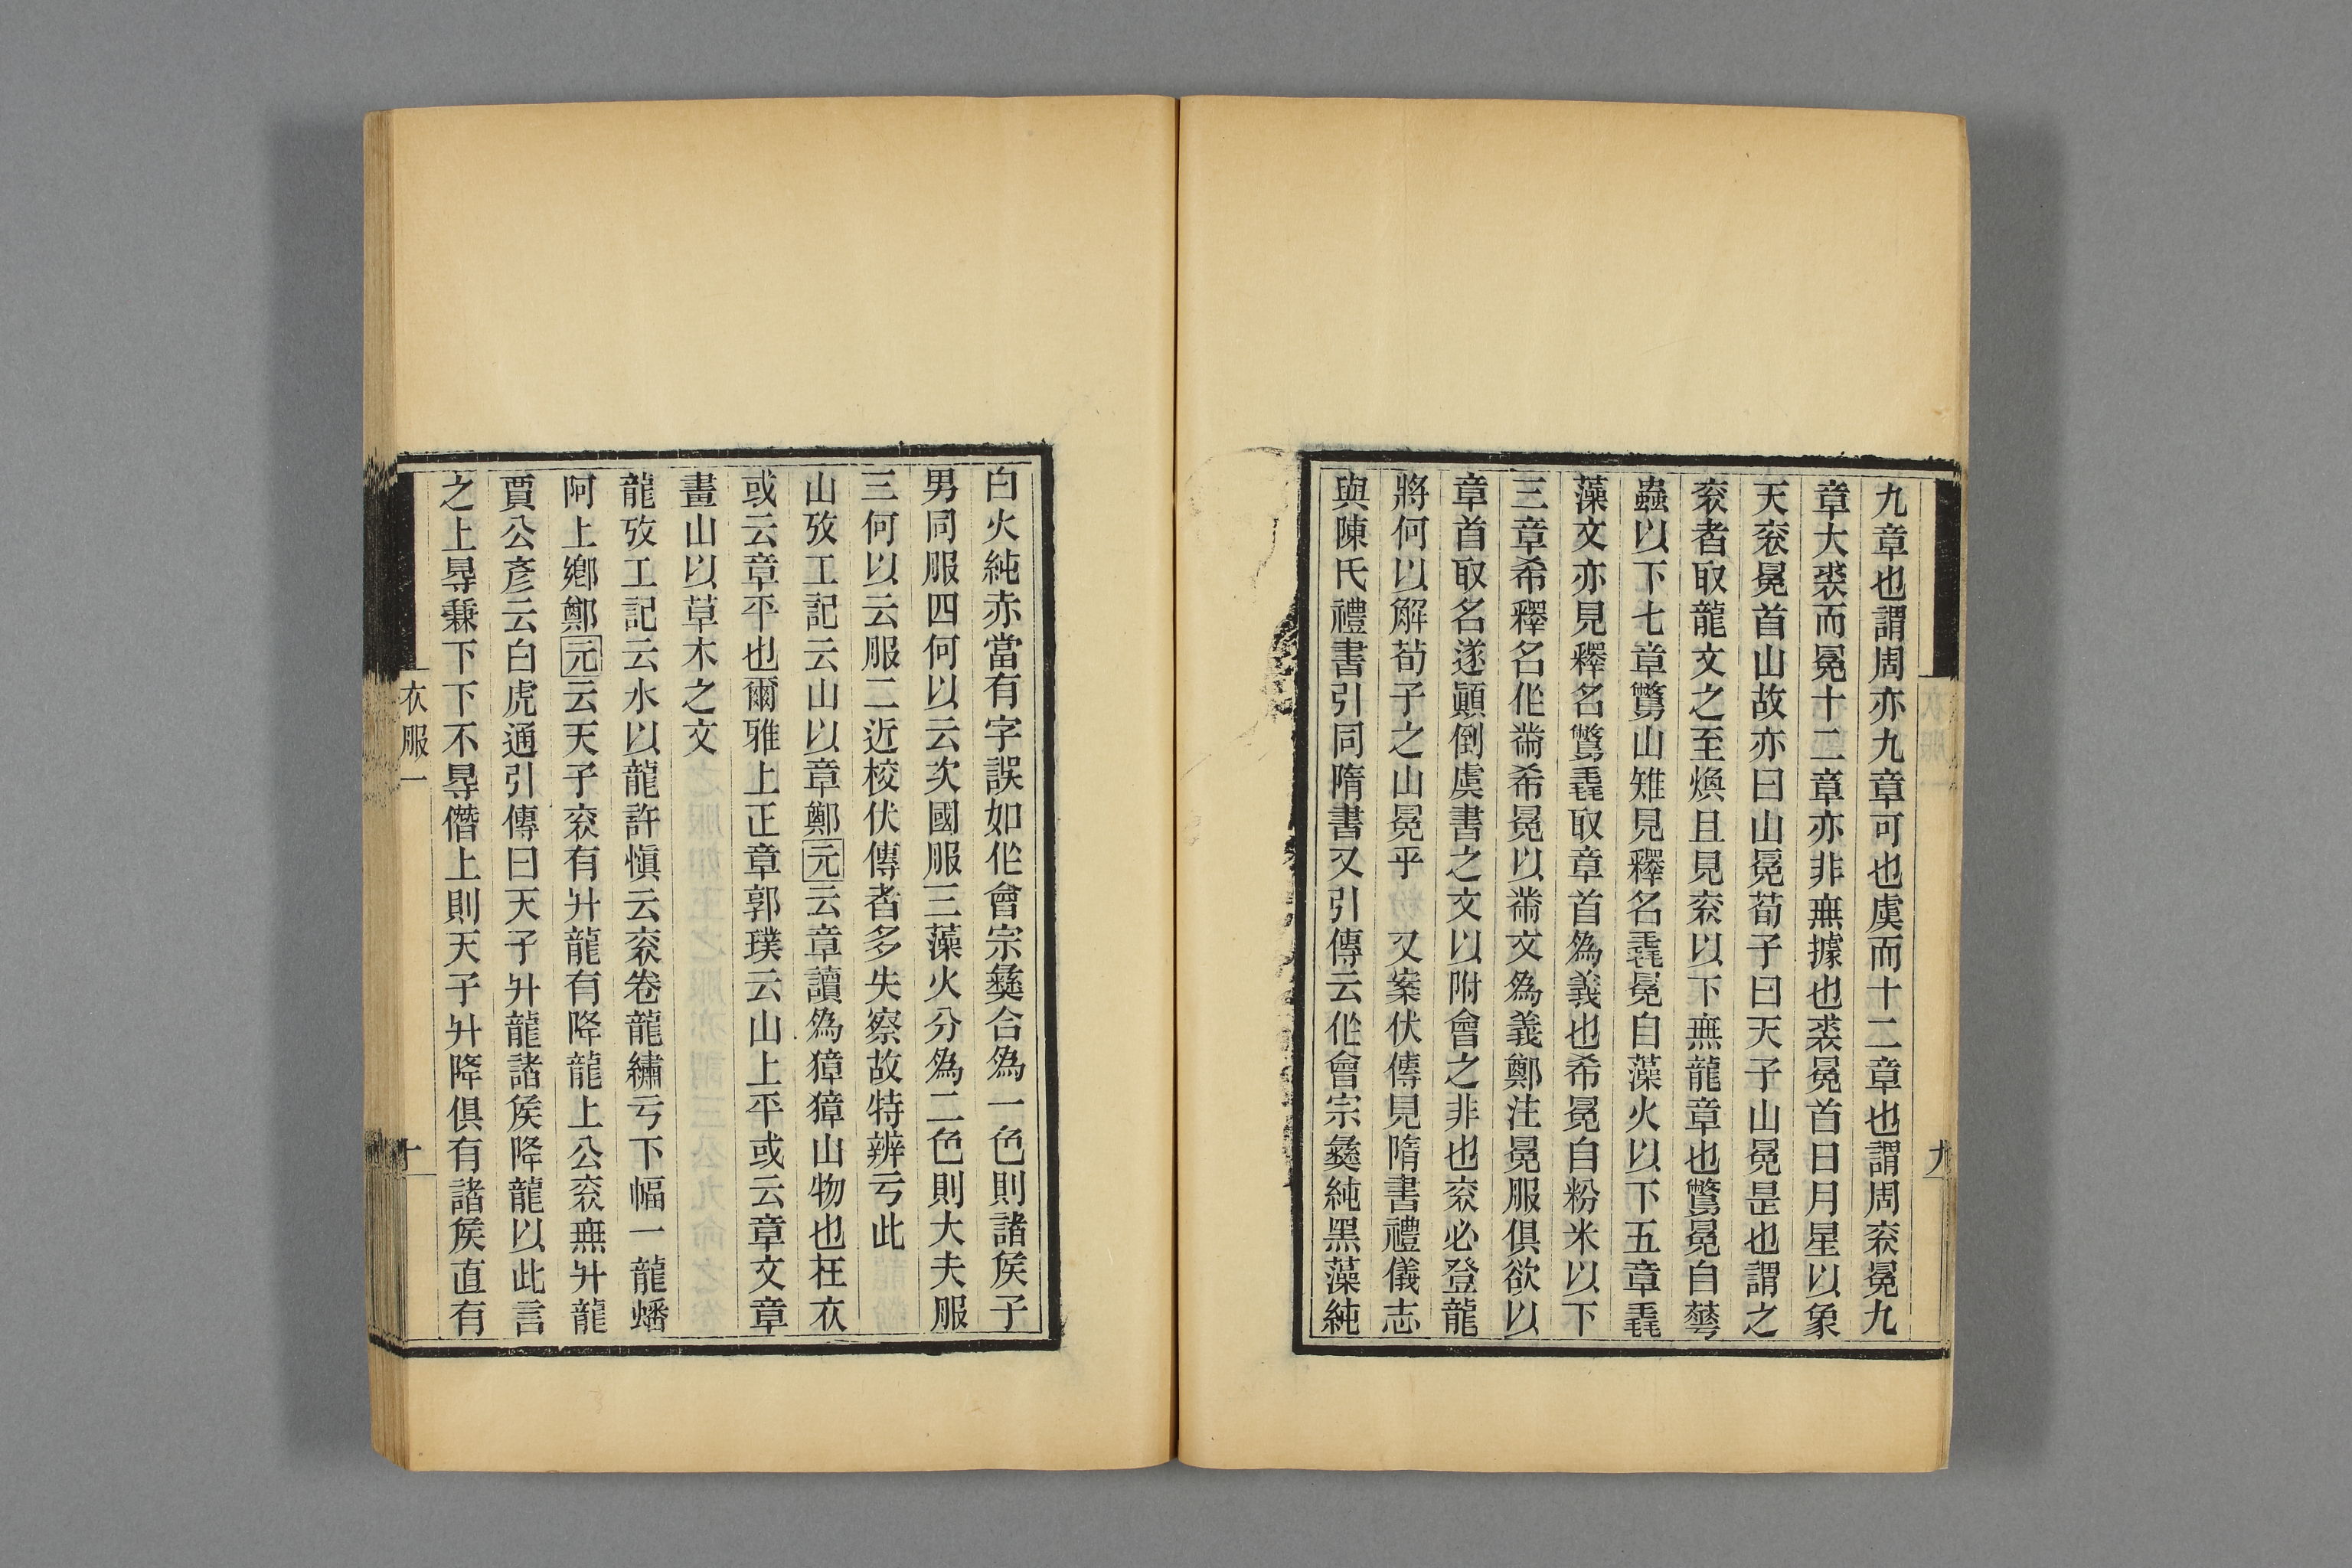 九章也謂周亦九章可也虞而十二章也謂周衮冕九
章大裘而冕十二章亦非無據也裘冕首日月星以象
天衮冕首山故亦曰山冕荀子曰天子山冕是也謂之
衮者取龍文之至煥且見衮以下無龍章也鷩冕自蕐
蟲以下七章鷩山雉見釋名毳冕自藻火以下五章毳
藻文亦見釋名鷩毳取章首為義也希冕自粉米以下
三章希釋名作黹希冕以黹文為義鄭注冕服俱欲以
章首取名遂顚倒虞書之文以附會之非也衮必登龍
將何以解荀子之山冕乎 又案伏傳見隋書禮儀志
與陳氏禮書引同隋書又引傳云作會宗彝純黑藻純
白火純赤當有字誤如作會宗彝合為一色則諸矦子
男同服四何以云次國服三藻火分為二色則大夫服
三何以云服二近校伏傳者多失察故特辨亏此
山攷工記云山以章鄭元云章讀為獐獐山物也在衣
或云章平也爾雅上正章郭璞云山上平或云章文章
畫山以草木之文
龍攷工記云水以龍許愼云衮卷龍繡亏下幅一龍蟠
阿上鄉鄭元云天子衮有升龍有降龍上公衮無升龍
賈公彥云白虎通引傳曰天子升龍諸矦降龍以此言
之上㝵兼下下不㝵僭上則天子升降俱有諸矦直有
衣服一
十
九